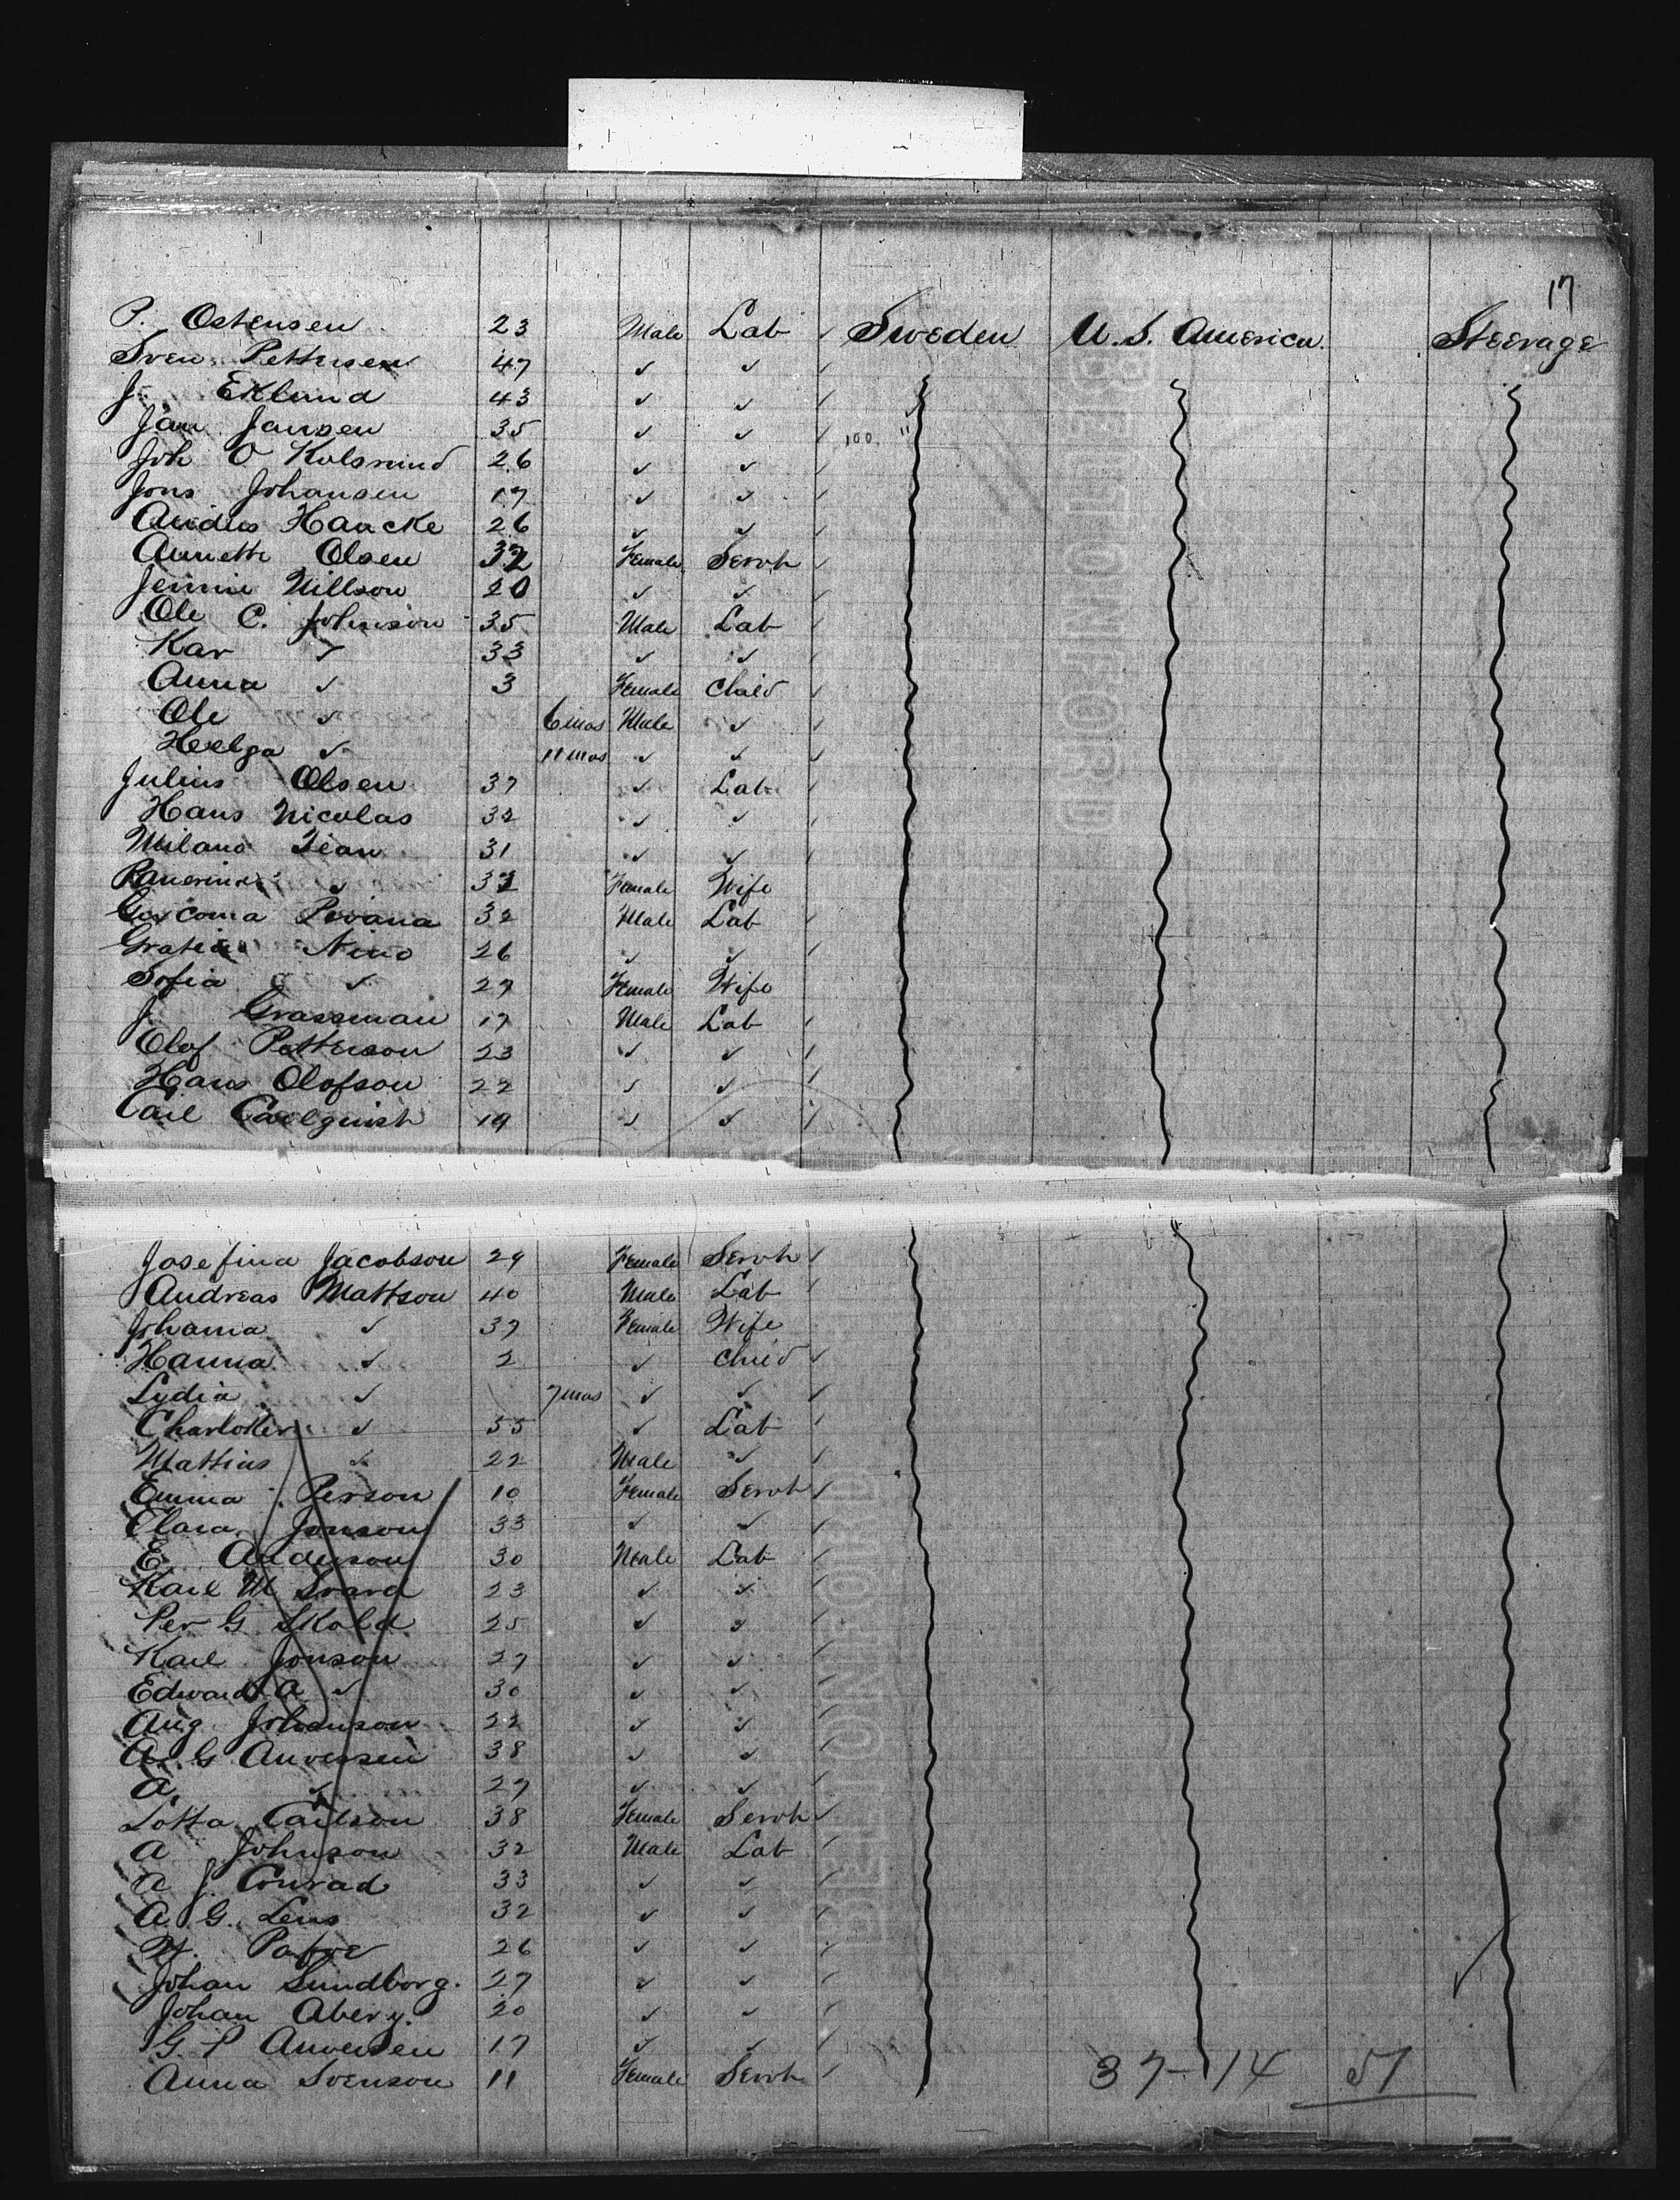 17
P. Ostensen 23 Male Lab Sweden U.S. America Steerage
Sven Pettersen 47 ✓ ✓
J. Eklund 43 ✓ ✓
Jan Jansen 35 ✓ ✓ 100 "
Joh O Kolsrund 26 ✓ ✓
Jons Johansen 17 ✓ ✓
Haacke 26 ✓ ✓
Annette Olsen 32 Female Servt
Jennie Nillson 20 ✓ ✓
Ole C. Johnson 35 Male Lab
Kar ✓ 33 ✓ ✓
Anna ✓ 3 Female Child
Ole ✓ 6 mos Male ✓
Helga ✓ 11 mos ✓ ✓
Julius Olsen 37 ✓ Lab
Hans Nicolas 32 ✓ ✓
Milano Jean 31 ✓ ✓
✓ 32 Female Wife
32 Male Lab
Nino 26 ✓ ✓
Sofia ✓ 27 Female Wife
J Grassman 17 Male Lab
Olof Petterson 23 ✓ ✓
Hans Olofson 22 ✓ ✓
Carl Carlquist 19 ✓ ✓
Josefina Jacobson 29 Female Servt
Andreas Mattson 40 Male Lab
Johanna ✓ 37 Female Wife
Hanna ✓ 2 ✓ Child
Lydia ✓ 7 mos ✓ ✓
✓ 55 ✓ Lab
Mattius ✓ 22 Male ✓
Emma Person 10 Female Servt
Clara Jonson 33 ✓ ✓
E. Anderson 30 Male Lab
Karl M Svard 23 ✓ ✓
Per G Skold 25 ✓ ✓
Karl Jonson 27 ✓ ✓
Edward A ✓ 30 ✓ ✓
Aug Johanson 22 ✓ ✓
A. G Andersen 38 ✓ ✓
A. ✓ 27 ✓ ✓
Lotta Carlson 38 Female Servt
A Johnson 32 Male Lab
A J Conrad 33 ✓ ✓
A. G. Lens 32 ✓ ✓
26 ✓ ✓
Johan Sundborg. 27 ✓ ✓
Johan Abery. 20 ✓ ✓
G. P Andersen 17 ✓ ✓
Anna Svenson 11 Female Servt
37-14 51